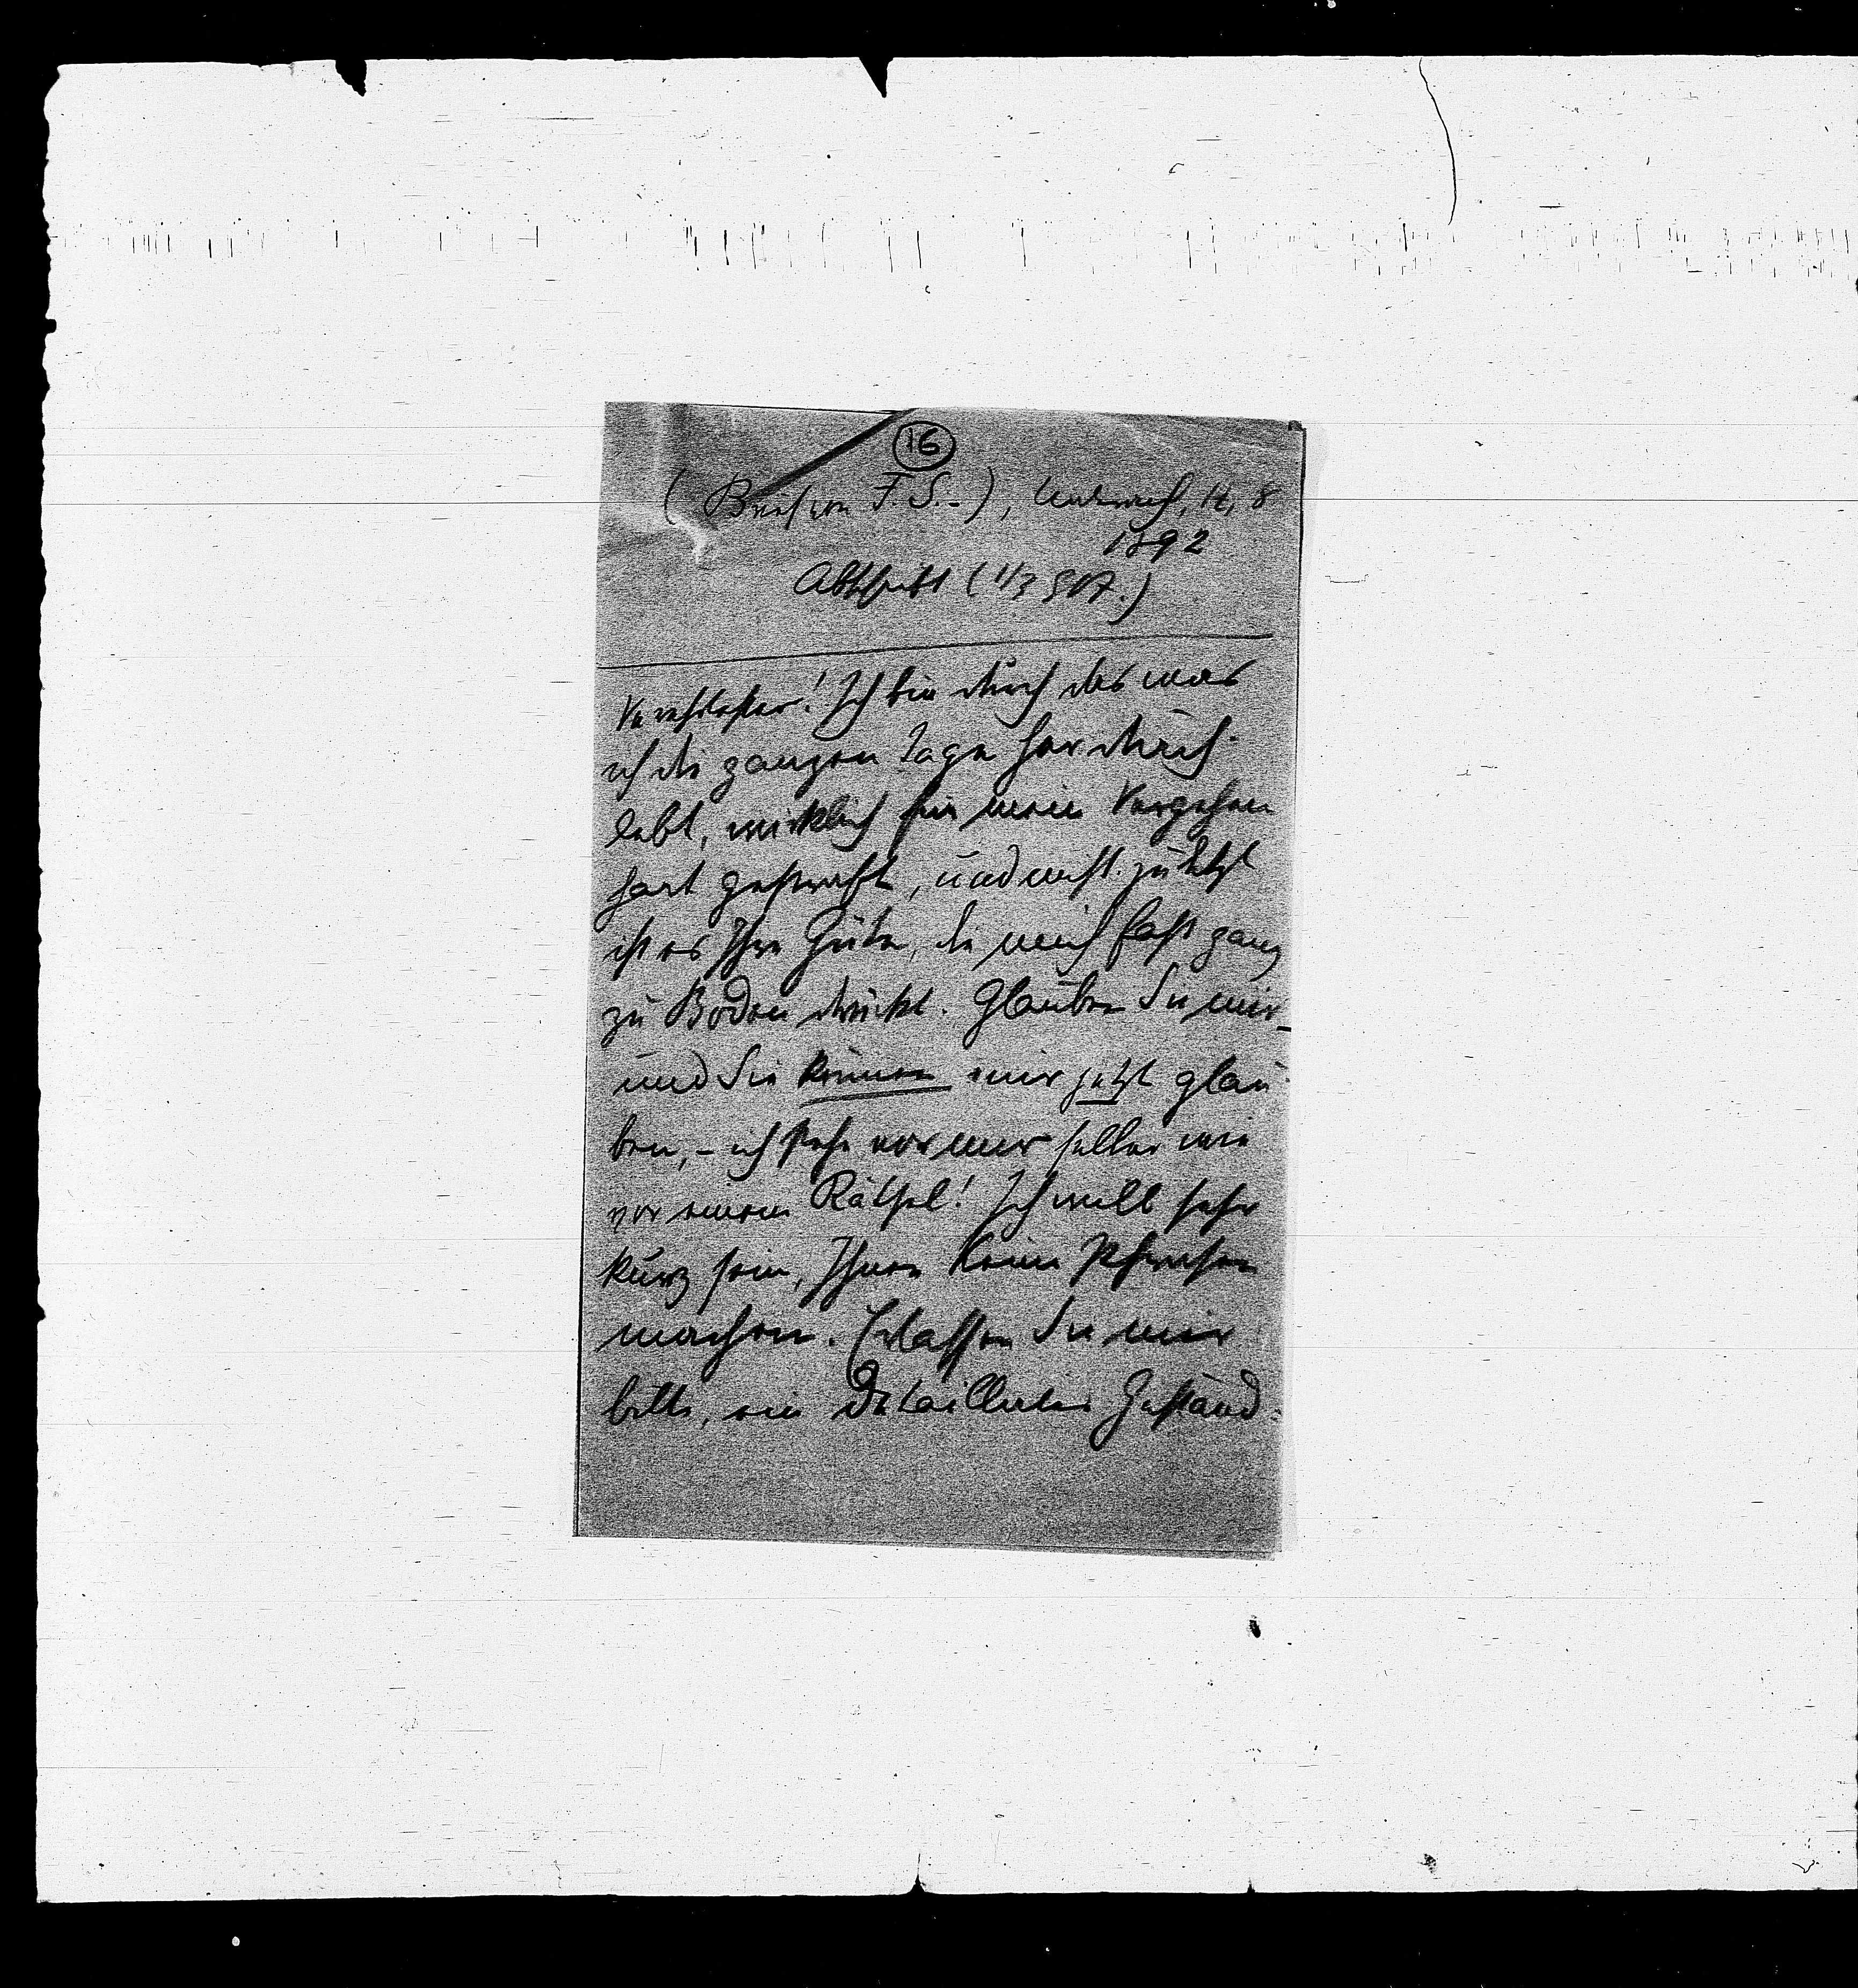 16
(Brief von F. S.-), 14, 8
1892
Abschrift (1/3 907.)
Verehrtester! Ich bin durch das was
ich die ganzen Tage her durch-
lebt, wirklich für mein Vergehen
hart gestraft, und nicht zuletzt
ist es Ihre Güte, die mich fast ganz
zu Boden drückt. Glauben Sie mir –
und Sie können mir jetzt glau-
ben, – ich stehe vor mir selber wie
vor einem Räthsel! Ich will sehr
kurz sein, Ihnen keine Phrasen
machen. Erlassen Sie mir
bitte, ein detaillirtes Geständ-